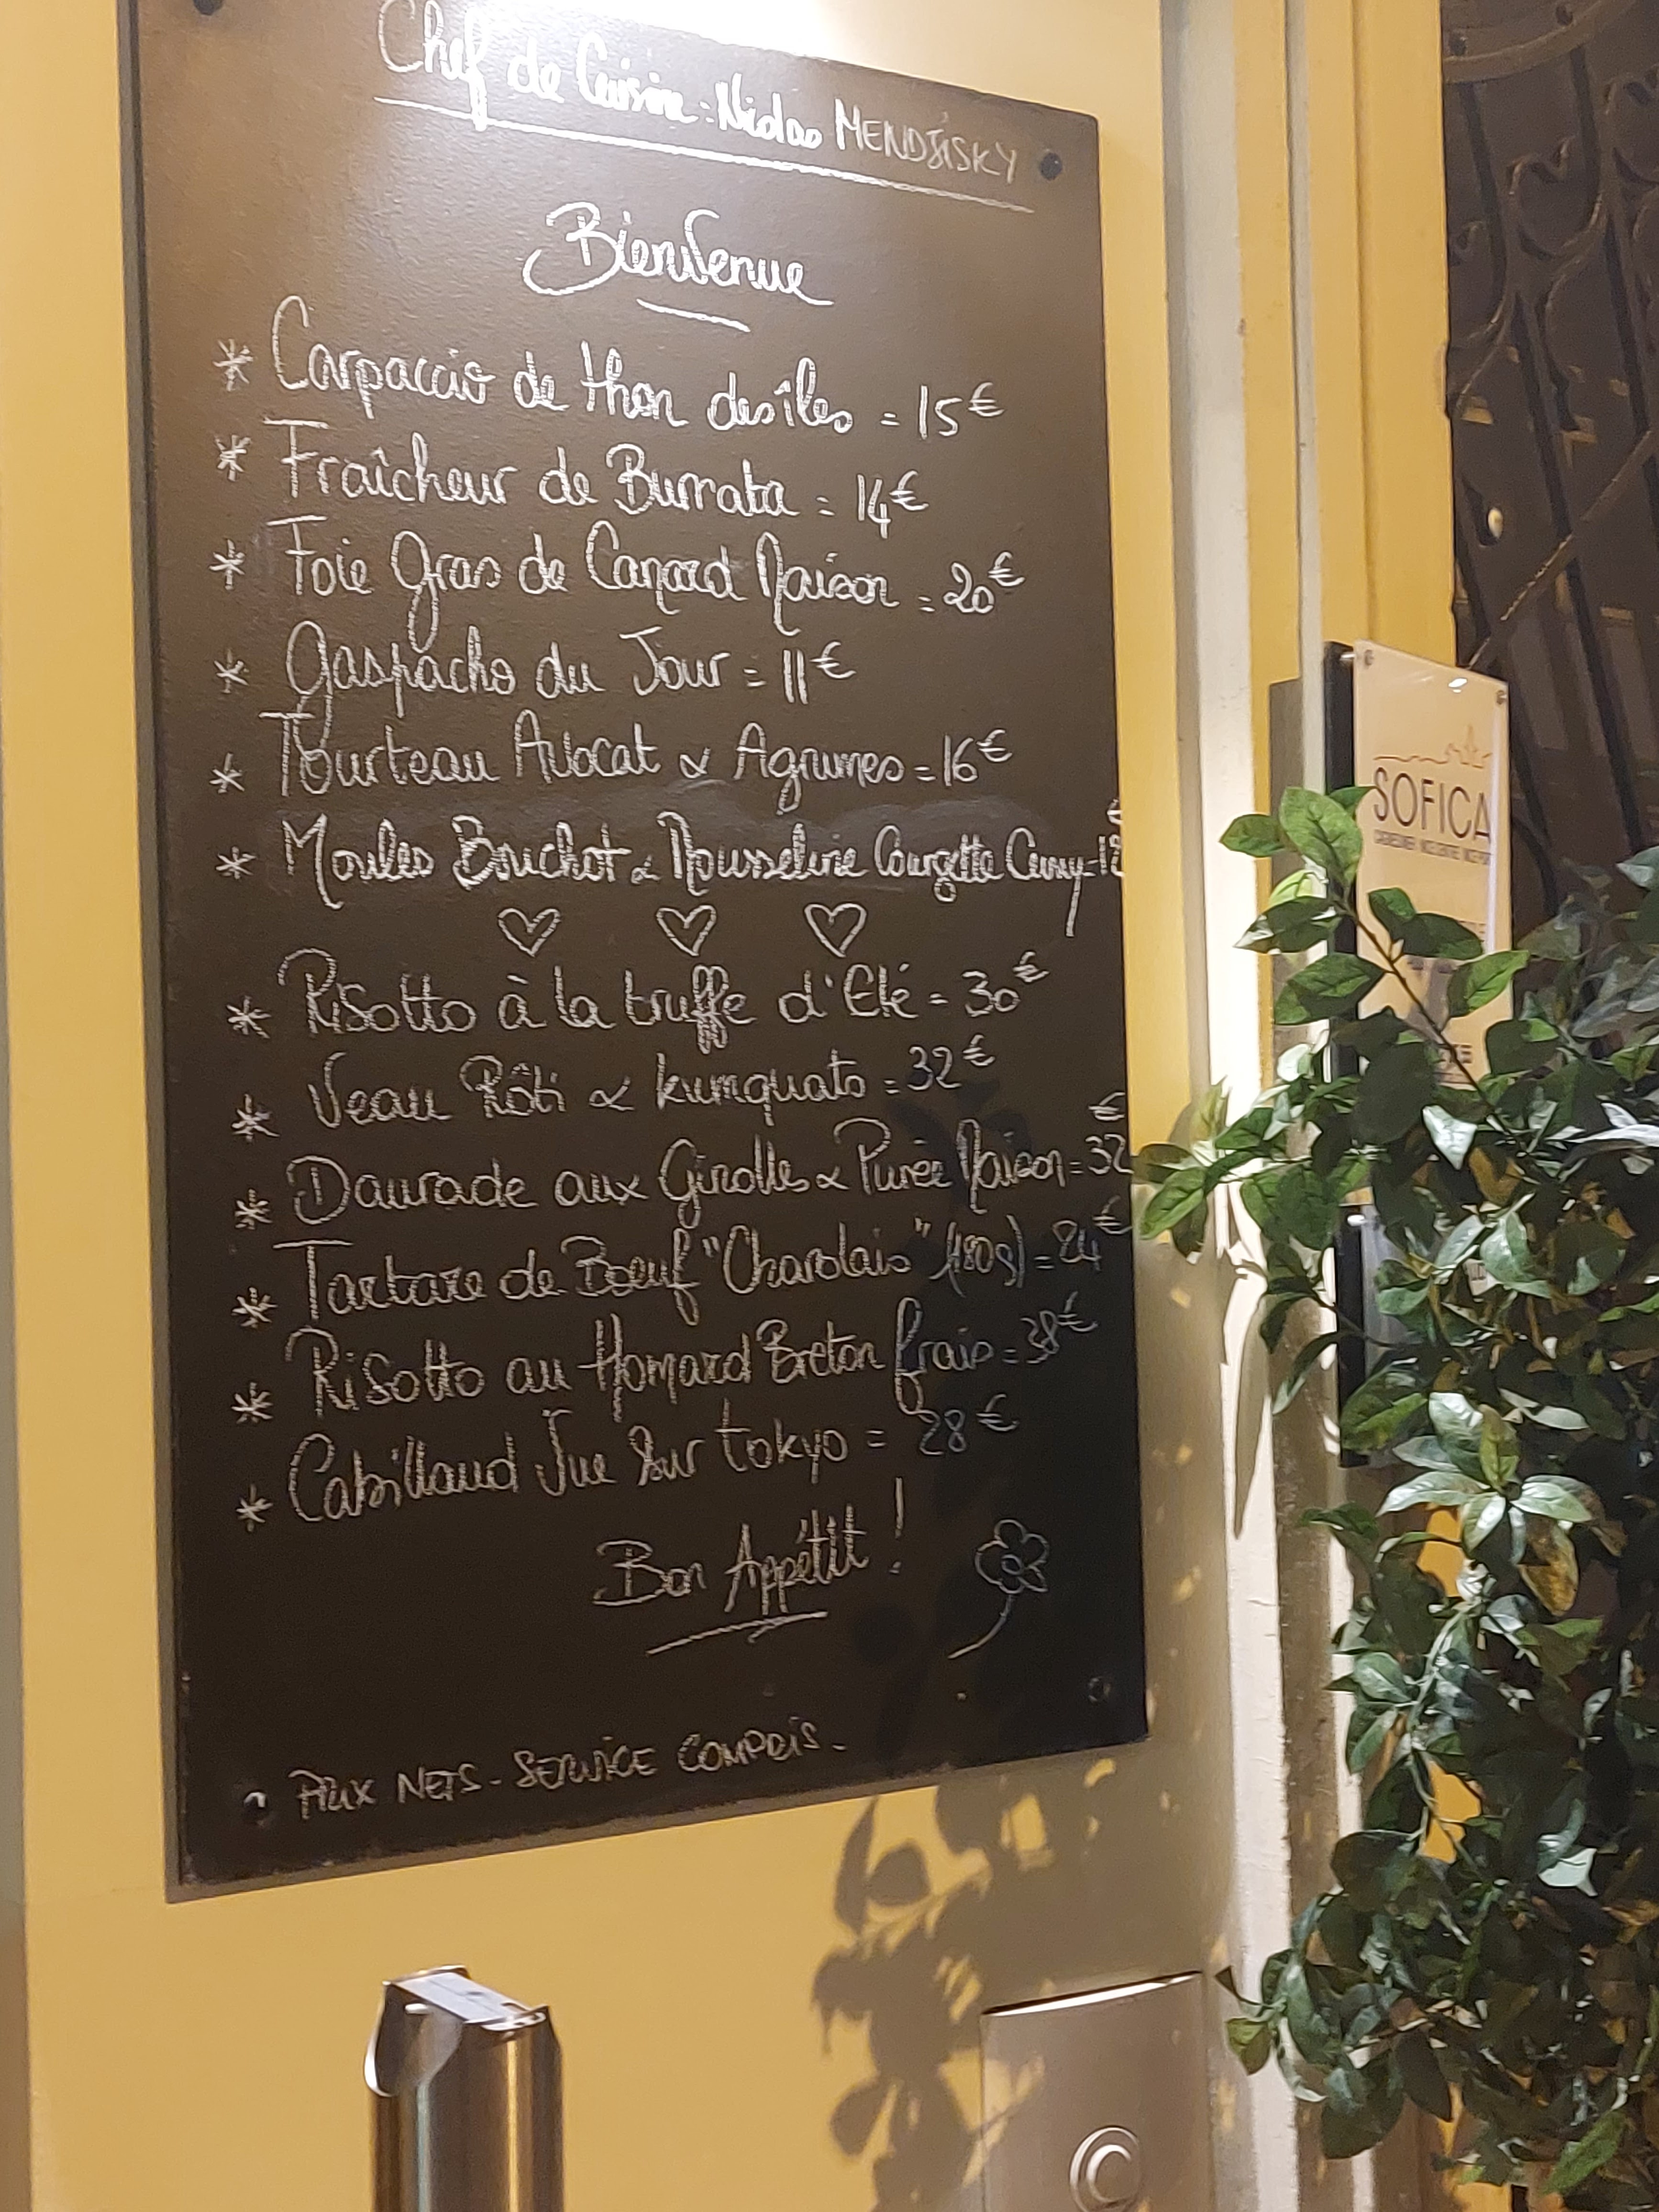 Chef de Cuisine : Nicolas MENDJISKY
Bienvenue
* Carpaccio de thon des îles = 15€
* Fraîcheur de Burrata = 14€
* Foie Gras de Canard Maison = 20€
* Gaspacho du Jour = 11€
* Tourteau Avocat & Agrumes = 16€
* Moules Bouchot & Mousseline Courgette Curry - €
* Risotto à la truffe d'Eté = 30€
* Veau Rôti & kumquats = 32€
* Daurade aux Girolles & Purée Maison = 32€
* Tartare de Boeuf "Charolais" (180g) = 24€
* Risotto au Homard Breton frais = 38€
* Cabillaud Vue Sur tokyo = 28€
Bon Appétit !
PRIX NETS - SERVICE COMPRIS -
SOFICA